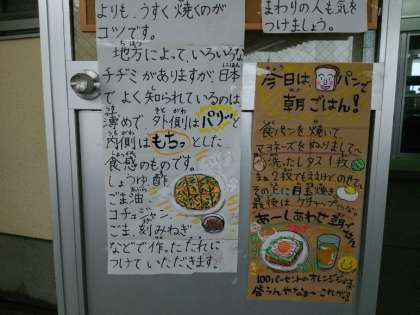 よりも、うすく焼くのが
コツです。
地方によって、いろいろな
チヂミがありますが、日本
でよく知られているのは
薄めで外側はパリッと
内側はもちっとした
食感のものです。
しょうゆ、酢
ごま油
コチュジャン、
ごま、刻みねぎ
などで作ったたれに
つけていただきます。
まわりの人も気を
つけましょう。
今日はパンで
朝ごはん!
食パンを焼いて
マヨネーズをぬりまして〜
洗ったレタス1枚
その上に目玉焼き
最後はケチャップ
あーしあわせ朝ごはん
100パーセントのオレンジジュース
合うんやなぁ〜これが